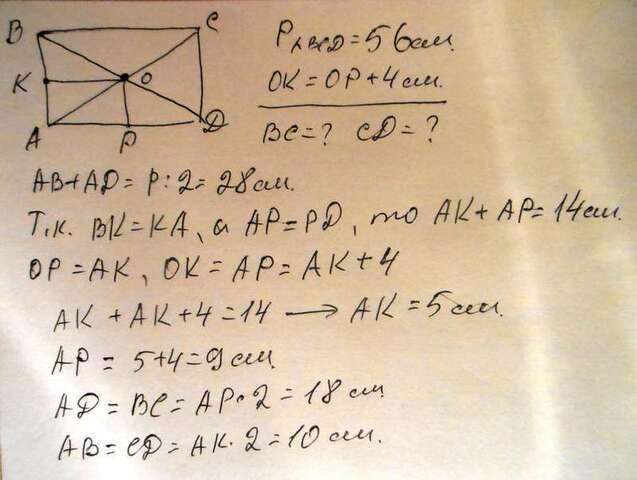 B C
K O
A P D
P ABCD = 56 см.
OK = OP + 4 см.
BC = ? CD = ?
AB + AD = P : 2 = 28 см.
Т.к. BK = KA, а AP = PD, то AK + AP = 14 см.
OP = AK, OK = AP = AK + 4
AK + AK + 4 = 14 → AK = 5 см.
AP = 5 + 4 = 9 см
AD = BC = AP · 2 = 18 см
AB = CD = AK · 2 = 10 см.